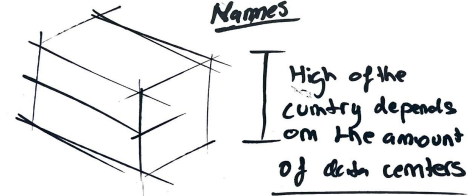 Names
High of the
cuntry depends
on the amount
of data centers